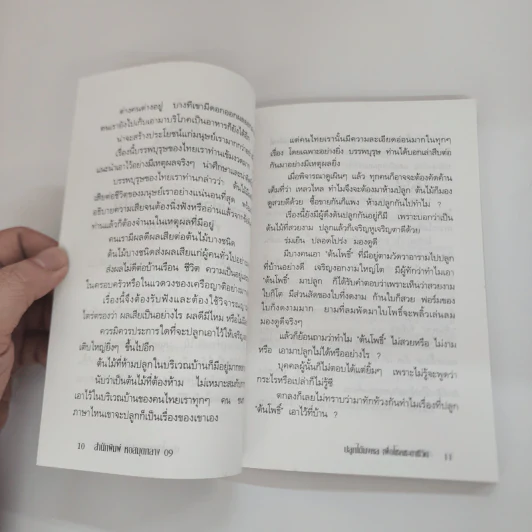 ต่างคนต่างอยู่ บางทีเขามีดอกออกผล
คนเรายังไปเก็บเอามาบริโภคเป็นอาหารก็ยังได้
น่าจะสร้างประโยชน์แก่มนุษย์เรามากกว่า
เรื่องนี้บรรพบุรุษของไทยเราท่านเข้มงวด
และนำเอาไว้อย่างมีเหตุผลจริงๆ น่าศึกษาและ
บรรพบุรุษของไทยเราท่านกล่าวว่า ต้นไม้
เสียต่อชีวิตของมนุษย์เราอย่างแน่นอนที่สุด
อธิบายความเสียจนต้องนิ่งฟังหรืออ่านแล้ว
ท่านแล้วก็ต้องจำนนในเหตุผลที่มีอยู่
คนเรามีผลดีผลเสียต่อต้นไม้บางชนิด
ต้นไม้บางชนิดส่งผลเสียแก่ผู้คนทั่วไป
ส่งผลไม่ดีต่อบ้านเรือน ชีวิต ความเป็นอยู่
ในครอบครัวหรือในแวดวงของเครือญาติ
เรื่องนี้จึงต้องรับฟังและต้องใช้วิจารณญาณ
ไตร่ตรองว่า ผลเสียเป็นอย่างไร ผลดีมีไหม
ควรมีควรประการใดที่จะปลูกเอาไว้ให้เจริญ
เติบใหญ่ยิ่งๆ ขึ้นไปอีก
ต้นไม้ที่ห้ามปลูกในบริเวณบ้านก็มีอยู่มาก
นับว่าเป็นต้นไม้ที่ต้องห้าม ไม่เหมาะสม
เอาไว้ในบริเวณบ้านของคนไทยเราทุกๆ คน
ภาษาไหนเขาจะปลูกก็เป็นเรื่องของเขาเอง
10 สำนักพิมพ์ หอสมุดกลาง 09
แต่คนไทยเรานั้นมีความละเอียดอ่อนมากในทุกๆ
เรื่อง โดยเฉพาะอย่างยิ่ง บรรพบุรุษ ท่านได้บอกเล่าสืบต่อ
กันมาอย่างมีเหตุผลยิ่ง
เมื่อพิจารณาดูเผินๆ แล้ว ทุกคนก็อาจจะต้องคัดค้าน
เต็มที่ว่า เหลวไหล ทำไมจึงจะต้องมาห้ามปลูก ต้นไม้ก็มอง
ดูสวยดีด้วย ซื้อขายกันก็แพง ห้ามปลูกกันไปทำไม ?
เรื่องนี้ยังมีผู้ดึงดันปลูกกันอยู่ก็มี เพราะบอกว่าเป็น
ต้นไม้ที่สวยงาม ปลูกแล้วก็เจริญหูเจริญตาดีด้วย
ร่มเย็น ปลอดโปร่ง มองดูดี
มีบางคนเอา "ต้นโพธิ์" ที่มีอยู่ตามวัดวาอารามไปปลูก
ที่บ้านอย่างดี เจริญงอกงามใหญ่โต มีผู้ทักว่าทำไมเอา
"ต้นโพธิ์" มาปลูก ก็ได้รับคำตอบว่าเพราะเห็นว่าสวยงาม
ใบก็โต มีส่วนลัดของใบที่งดงาม ก้านใบก็สวย ฟอร์มของ
ใบก็งดงามมาก ยามที่ลมพัดมาใบโพธิ์จะพลิ้วเล่นลม
มองดูดีจริงๆ
แล้วก็ย้อนถามว่าทำไม "ต้นโพธิ์" ไม่สวยหรือ ไม่งาม
หรือ เอามาปลูกไม่ได้หรืออย่างไร ?
บุคคลผู้นั้นก็ไม่ตอบได้แต่ยิ้มๆ เพราะไม่รู้จะพูดว่า
กระไรหรือเปล่าก็ไม่รู้ซี
ตกลงก็เลยไม่ทราบว่ามาทักท้วงกันทำไมเรื่องที่ปลูก
"ต้นโพธิ์" เอาไว้ที่บ้าน ?
11